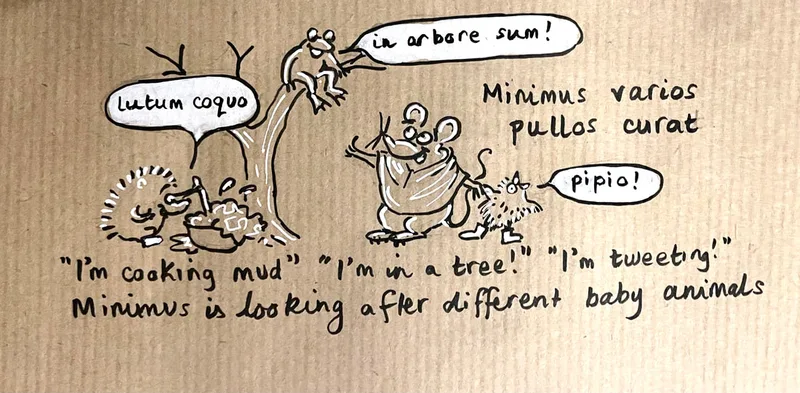 in arbore sum!
lutum coquo
Minimus varios
pullos curat
pipio!
"I'm cooking mud" "I'm in a tree!" "I'm tweeting!"
Minimus is looking after different baby animals